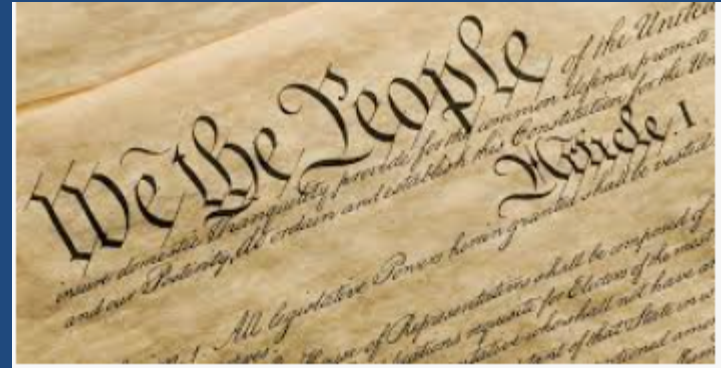 We the People of the United
insure domestic Tranquility, provide for the common defence, promote
and our Posterity, do ordain and establish this Constitution for the Un
Article. I
All legislative Powers herein granted shall be vested
House of Representatives shall be composed of
requisite for Electors of the most
shall not have
of that State in